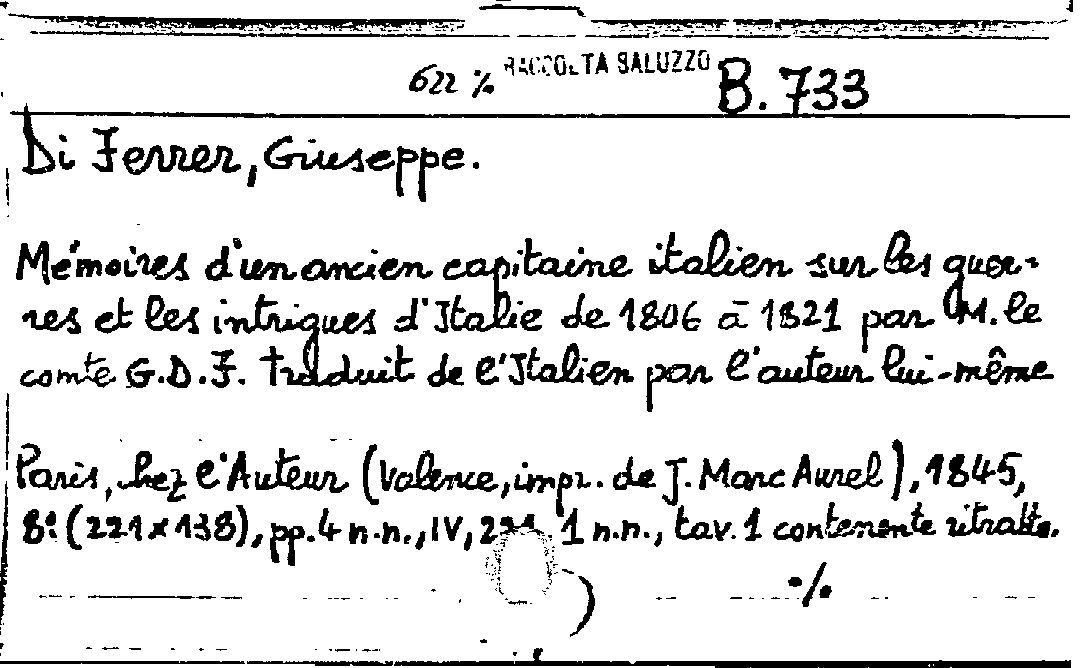 622 ./. RACCOLTA SALUZZO B. 733
Di Ferrer, Giuseppe.
Mémoires d'un ancien capitaine italien sur les guer-
res et les intrigues d'Italie de 1806 à 1821 par M. le
comte G.D.F. traduit de l'Italien par l'auteur lui-même
Paris, chez l'Auteur (Valence, impr. de J. Marc Aurel), 1845,
8º (221x138), pp. 4 n.n., IV, 1 n.n., tav. 1 contenente ritratto.
./.